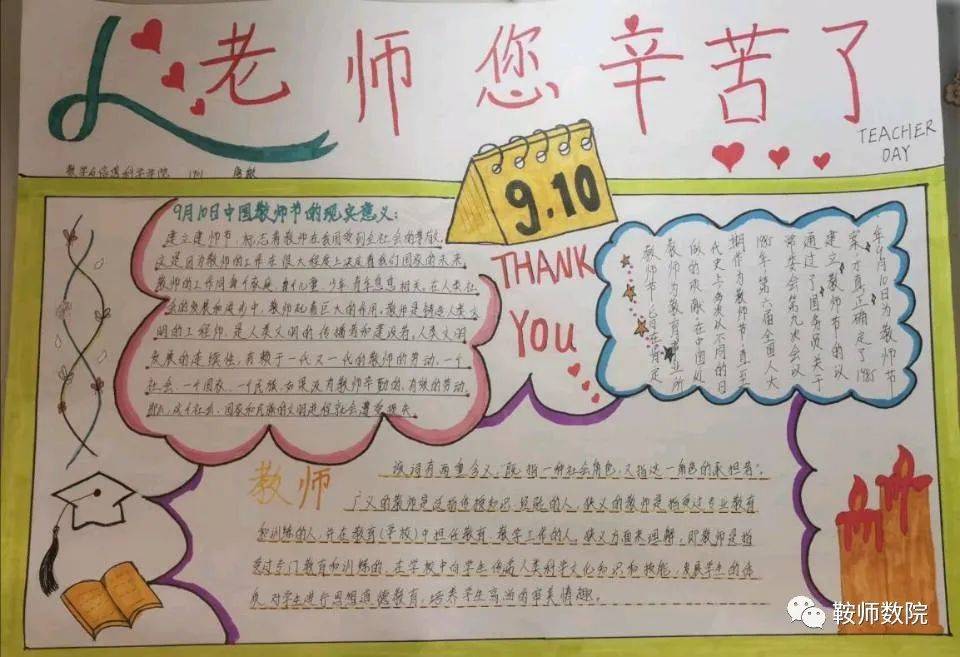 老师您辛苦了
TEACHER
DAY
数学与信息科学学院 1901
9.10
9月10日中国教师节的现实意义:
建立建师节,标志着教师在我国受到全社会的尊敬。
这是因为教师的工作在很大程度上决定着我们国家的未来。
教师的工作同每个家庭、每个儿童、少年有息息相关。在人类社
会的发展和进步中,教师起着巨大的作用。教师是铸造人类文
明的工程师,是人类文明的传播者和建设者。人类文明
发展的连续性,有赖于一代又一代的教师的劳动。一个
社会、一个国家、一个民族,如果没有教师辛勤的、有效的劳动,
那么,这个社会、国家和民族的文明进程就会遭受损失。
THANK
YOU
年9月10日为教师节
案,才真正确定了1985
建立教师节的议
通过了国务院关于
常委会第九次会议
1985年第六届全国人大
期作为教师节,直至
代史上多次以不同的日
做的贡献,在中国近
教师为教育事业所
教师节,旨在肯定
教师
该词有两重含义,既指一种社会角色,又指这一角色的承担者。
广义的教师是泛指传授知识、经验的人,狭义的教师是指受过专业教育
和训练的人,并在教育(学校)中担任教育、教学工作的人。狭义方面来理解,即教师是指
受过专门教育和训练的,在学校中向学生传递人类科学文化知识和技能,发展学生的体
质,对学生进行思想道德教育,培养学生高尚的审美情趣。
鞍师数院